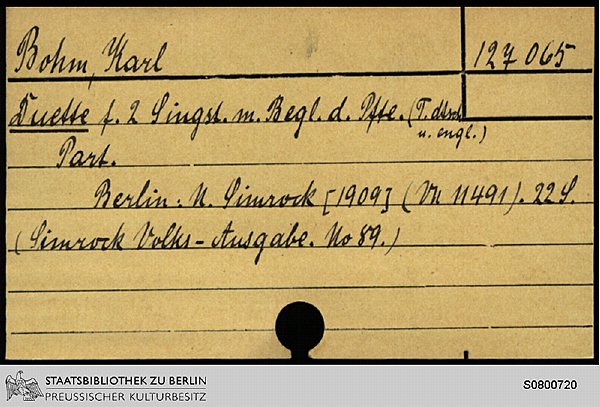 Bohm, Karl
127 065
Duette f. 2 Singst. m. Begl. d. Pfte. (T. dtsch.
u. engl.)
Part.
Berlin: N. Simrock [1909] (Vn 11491). 22 S.
(Simrock Volks-Ausgabe. No 89.)
STAATSBIBLIOTHEK ZU BERLIN
PREUSSISCHER KULTURBESITZ
S0800720